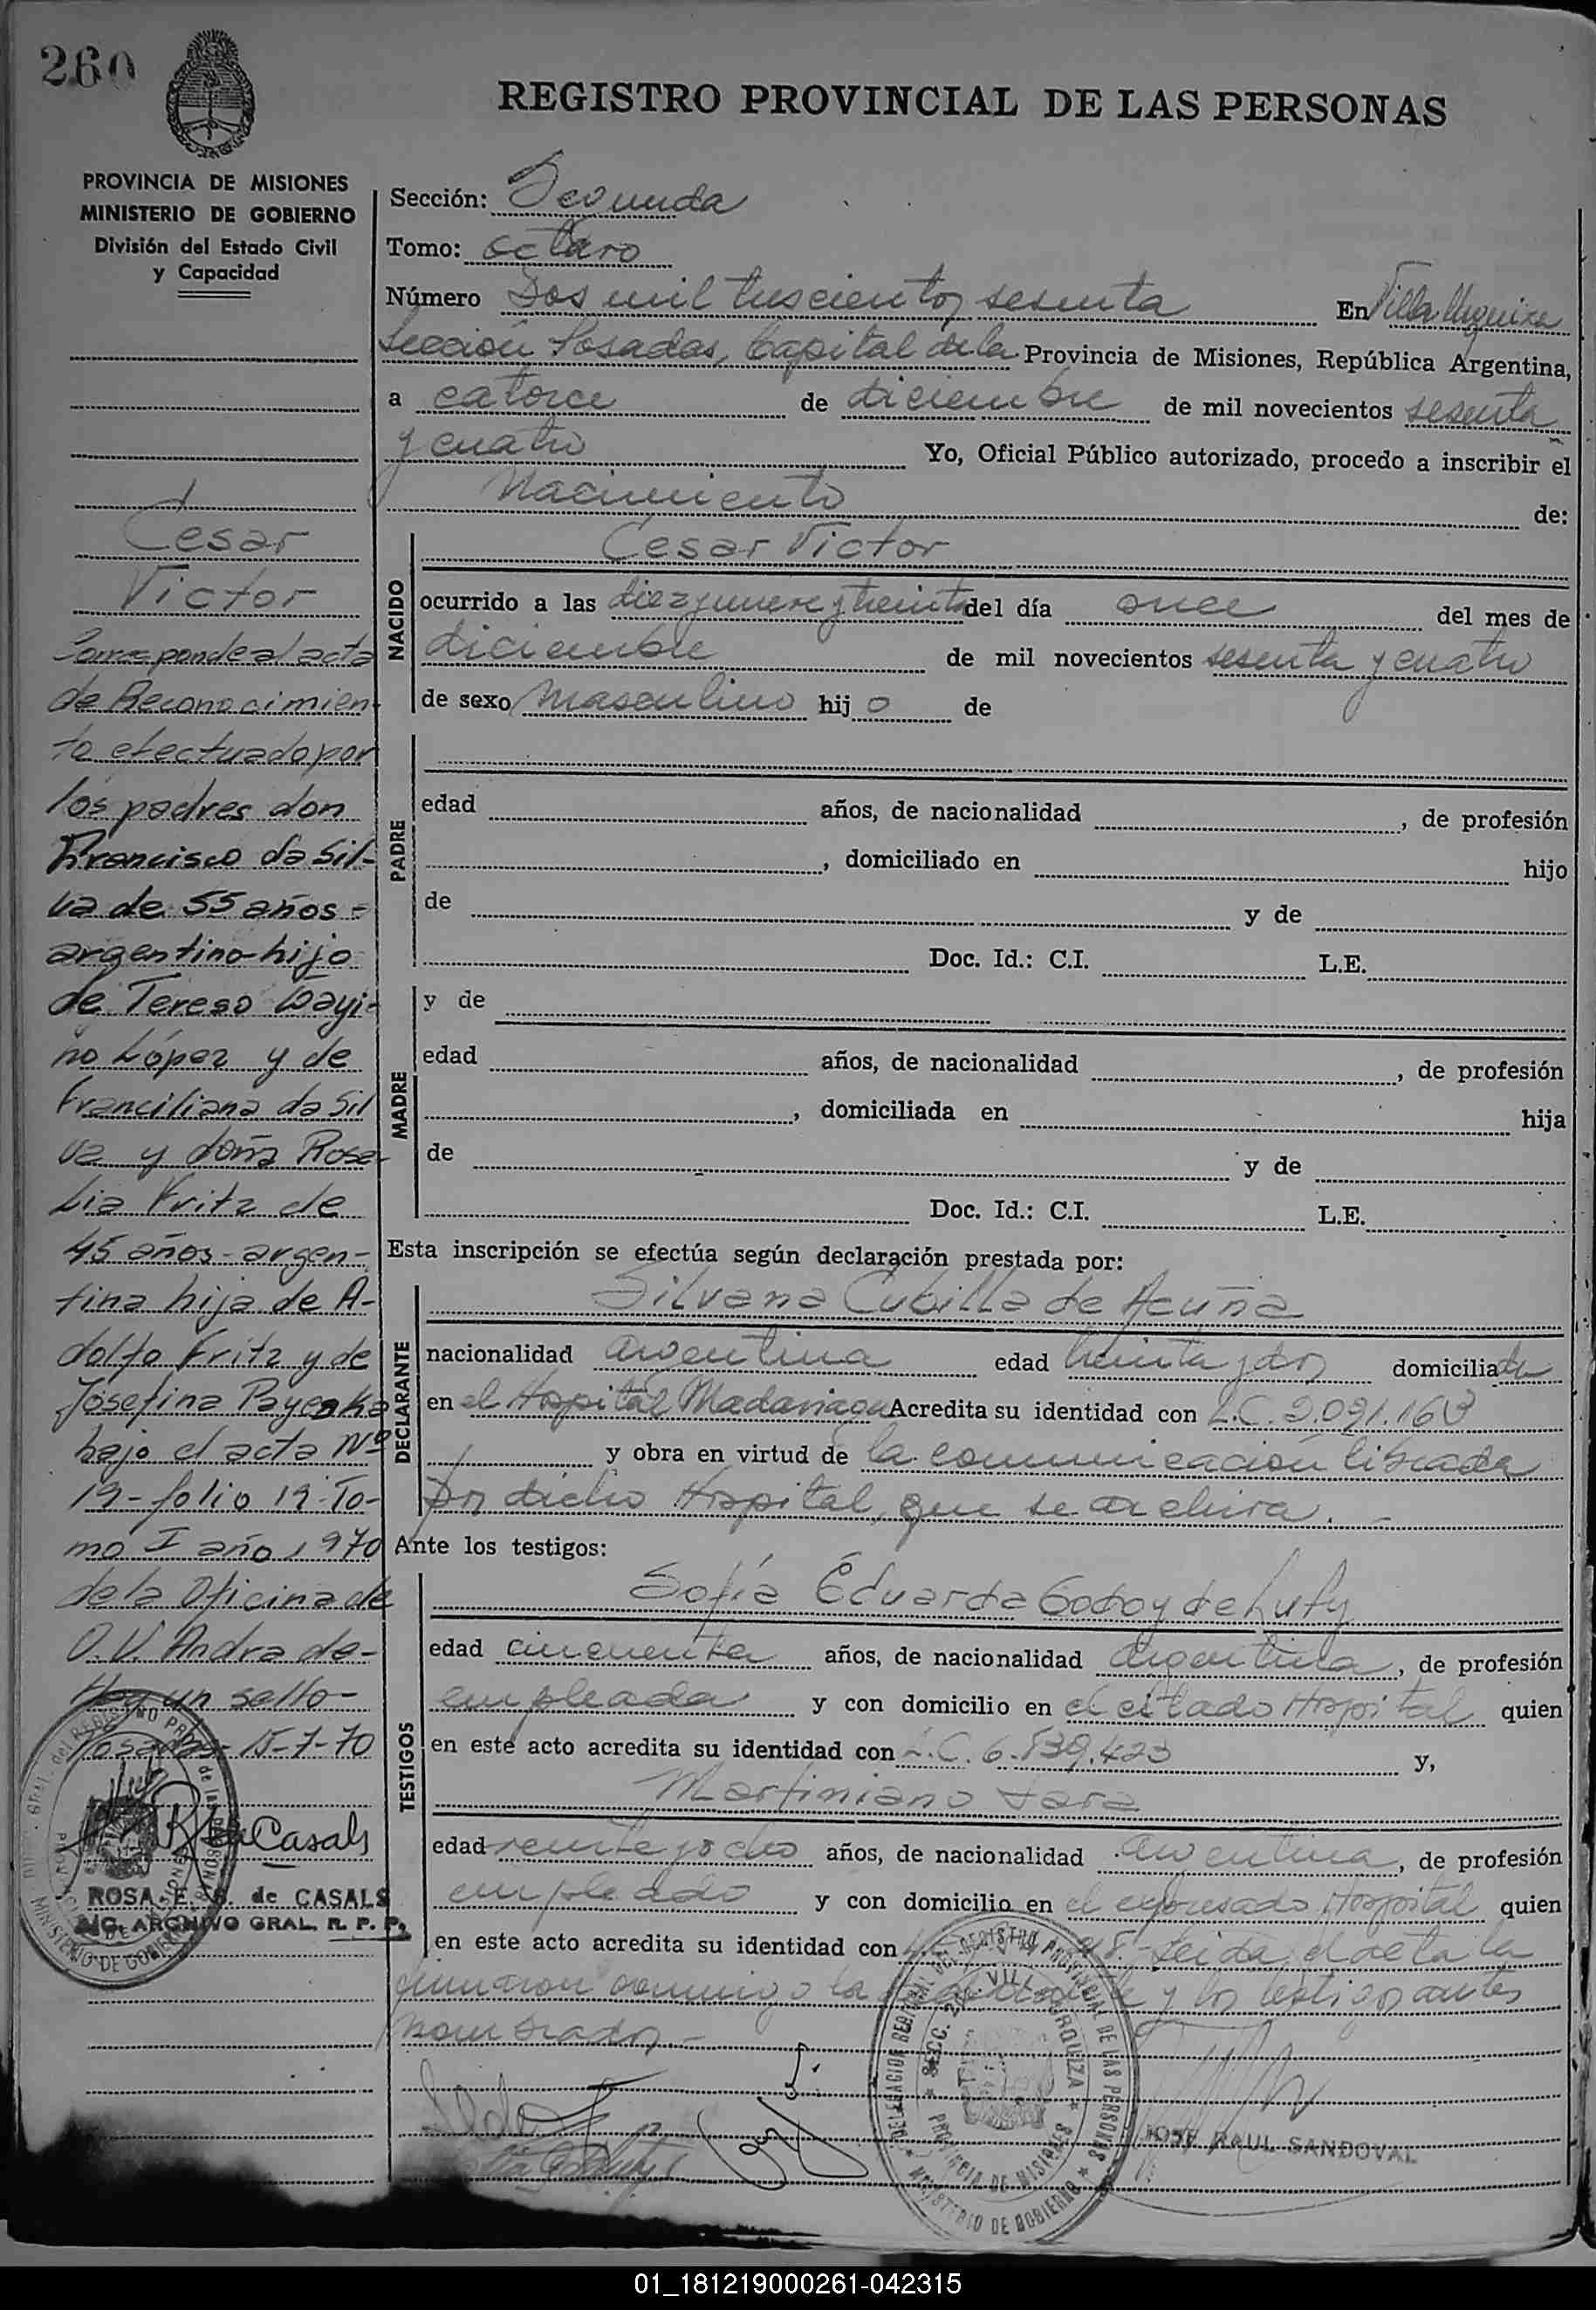 260
REGISTRO PROVINCIAL DE LAS PERSONAS
PROVINCIA DE MISIONES
MINISTERIO DE GOBIERNO
División del Estado Civil
y Capacidad
Cesar
Victor
Corresponde al acta
de Reconocimien-
to efectuado por
los padres don
Francisco da Sil-
va de 55 años-
argentino-hijo
de Tereso
no López y de
Franciliana da Sil
va y doña Rosa-
Lia Fritz de
45 años-argen-
tina hija de A-
dolfo Fritz y de
Josefina
bajo el acta Nº
19-folio 19-To-
mo I año 1970
de la Oficina de
O.V. Andrade-
Hay un sello-
Posadas-15-7-70
Casals
ROSA E. S. de CASALS
ARCHIVO GRAL. R. P. P.
Sección: Segunda
Tomo: octavo
Número Dos mil trescientos sesenta En Villa Urquiza
Sección Posadas, Capital de la Provincia de Misiones, República Argentina,
a catorce de diciembre de mil novecientos sesenta
y cuatro Yo, Oficial Público autorizado, procedo a inscribir el
Nacimiento de:
NACIDO
Cesar Victor
ocurrido a las diez y nueve y treinta del día once del mes de
diciembre de mil novecientos sesenta y cuatro
de sexo masculino hijo de
PADRE
edad años, de nacionalidad , de profesión
, domiciliado en hijo
de y de
Doc. Id.: C.I. L.E.
MADRE
y de
edad años, de nacionalidad , de profesión
, domiciliada en hija
de y de
Doc. Id.: C.I. L.E.
Esta inscripción se efectúa según declaración prestada por:
DECLARANTE
Silvana Cubilla de Acuña
nacionalidad argentina edad treinta y dos domiciliada
en el Hospital Madariaga Acredita su identidad con L.C.
y obra en virtud de la comunicación librada
por dicho Hospital, que se archiva.-
Ante los testigos:
TESTIGOS
Sofía Eduarda Godoy de Lufy
edad cincuenta años, de nacionalidad argentina, de profesión
empleada y con domicilio en el citado Hospital quien
en este acto acredita su identidad con L.C. 6.839.423 y,
Martiniano Jara
edad veinte y ocho años, de nacionalidad argentina, de profesión
empleado y con domicilio en el expresado Hospital quien
en este acto acredita su identidad con Leida el acta la
firmaron conmigo la declarante y los testigos antes
nombrados.-
DELEGACION REGIONAL DEL REGISTRO PROVINCIAL DE LAS PERSONAS
SECC. 2ª VILLA URQUIZA
PROVINCIA DE MISIONES
MINISTERIO DE GOBIERNO
JOSE RAUL SANDOVAL
01_181219000261-042315